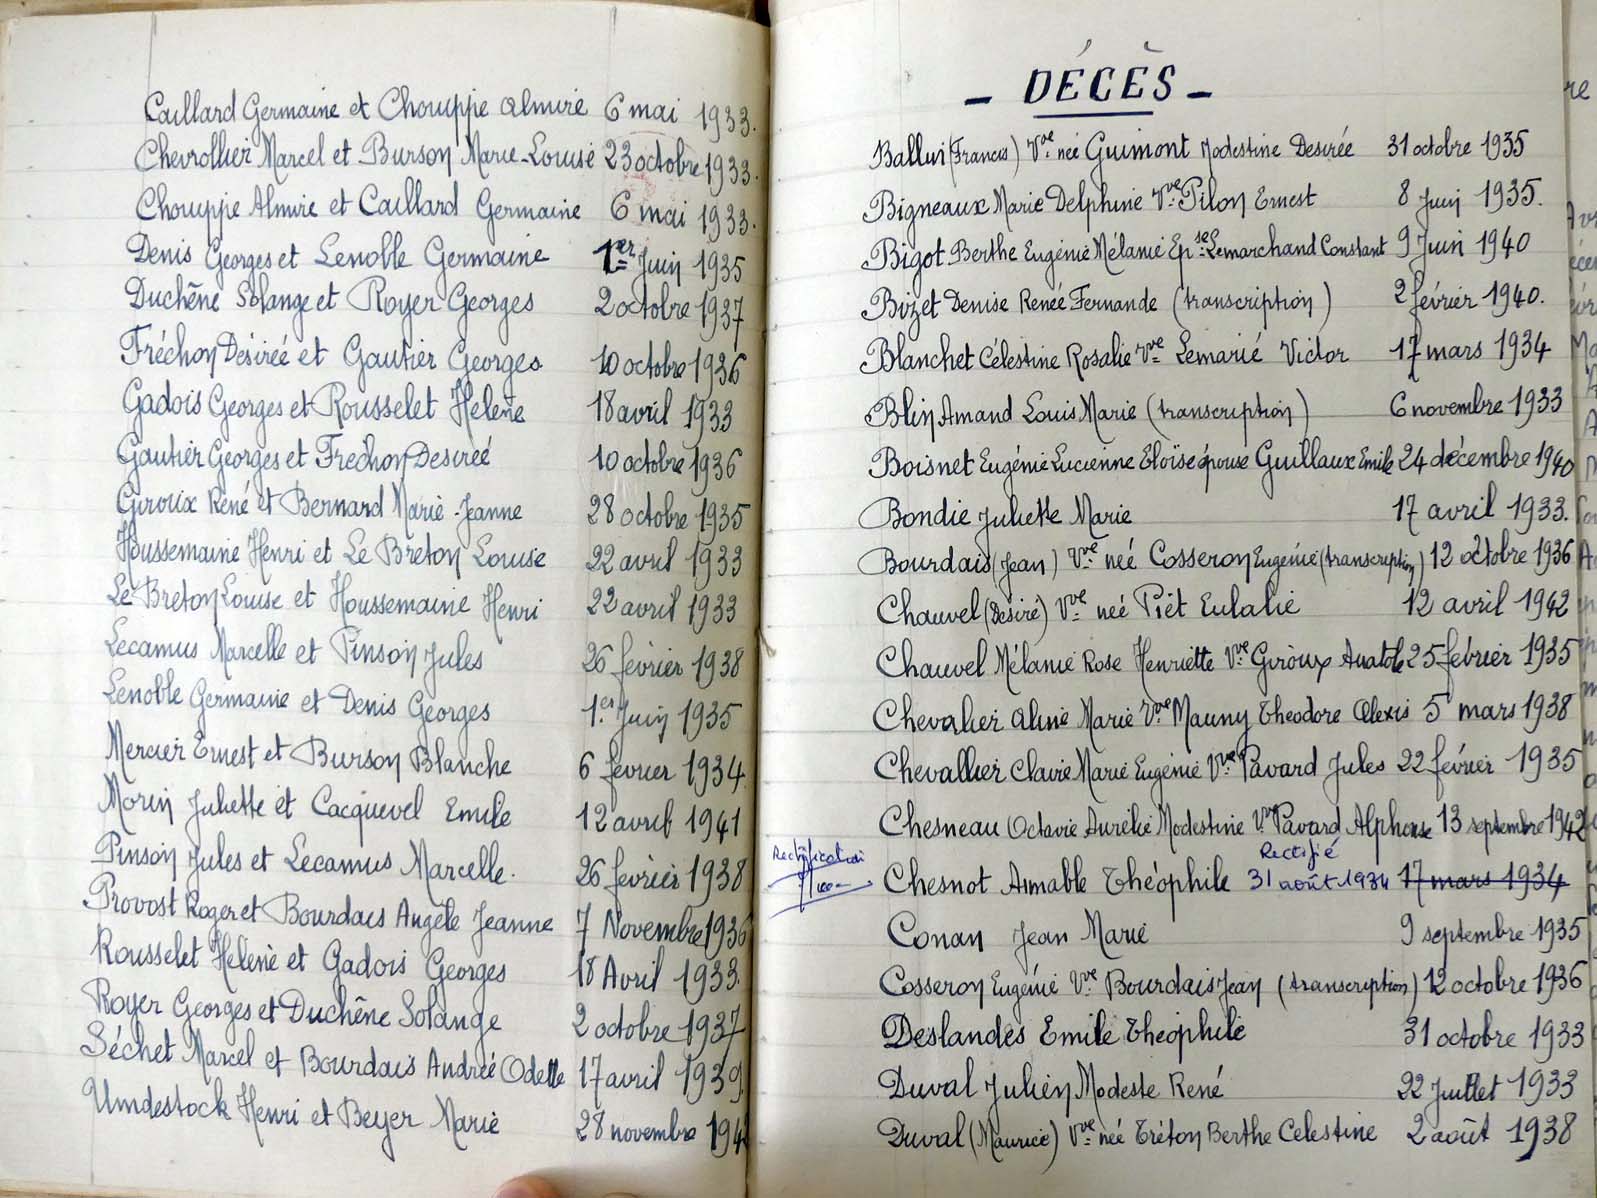 Caillard Germaine et Chouippe Almire 6 mai 1933.
Chevrollier Marcel et Burson Marie-Louise 23 octobre 1933.
Chouippe Almire et Caillard Germaine 6 mai 1933.
Denis Georges et Lenoble Germaine 1er Juin 1935
Duchêne Solange et Royer Georges 2 octobre 1937
Fréchon Desireé et Gautier Georges 10 octobre 1936
Gadois Georges et Rousselet Helene 18 avril 1933
Gautier Georges et Frechon Desireé 10 octobre 1936
Giroux René et Bernard Marie-Jeanne 28 octobre 1935
Houssemaine Henri et Le Breton Louise 22 avril 1933
Le Breton Louise et Houssemaine Henri 22 avril 1933
Lecamus Marcelle et Pinson Jules 26 février 1938
Lenoble Germaine et Denis Georges 1er Juin 1935
Mercier Ernest et Burson Blanche 6 fevrier 1934
Morin Juliette et Cacquevel Emile 12 avril 1941
Pinson Jules et Lecamus Marcelle. 26 février 1938
Provost Roger et Bourdais Angèle Jeanne 7 Novembre 1936
Rousselet Helene et Gadois Georges 18 Avril 1933.
Royer Georges et Duchêne Solange 2 octobre 1937
Séchet Marcel et Bourdais Andreé Odette 17 avril 1939.
Umdestock Henri et Beyer Marie 28 novembre
- DÉCÈS -
Ballui (Francis) Vve née Guimont Modestine Desirée 31 octobre 1935
Bigneaux Marie Delphine Vve Pilon Ernest 8 Juin 1935.
Bigot Berthe Eugénie Mélanie Epse Lemarchand Constant 9 Juin 1940
Bizet Denise Renée Fernande (transcription) 2 février 1940.
Blanchet Célestine Rosalie Vve Lemarié Victor 17 mars 1934
Blin Amand Louis Marie (transcription) 6 novembre 1933
Boisnet Eugénie Lucienne Eloïse épouse Guillaux Emile 24 décembre 1940
Bondie Juliette Marie 17 avril 1933.
Bourdais (Jean) Vve née Cosseron Eugénie (transcription) 12 octobre 1936
Chauvel (Desiré) Vve neé Piét Eulalie 12 avril 1942
Chauvel Mélanie Rose Henriette Vve Giroux Anatole 25 février 1935
Chevalier Aline Marie Vve Mauny Theodore Alexis 5 mars 1938
Chevallier Claire Marie Eugénie Vve Pavard Jules 22 février 1935
Chesneau Octavie Aurélie Modestine Vve Pavard Alphonse 13 septembre 1942
Rectification
Rectifié
Chesnot Aimable Théophile 31 août 1934 17 mars 1934
Conan Jean Marie 9 septembre 1935
Cosseron Eugénie Vve Bourdais Jean (transcription) 12 octobre 1936
Deslandes Emile Theophile 31 octobre 1933
Duval Julien Modeste René 22 Juillet 1933
Duval (Maurice) Vve née Tréton Berthe Celestine 2 août 1938